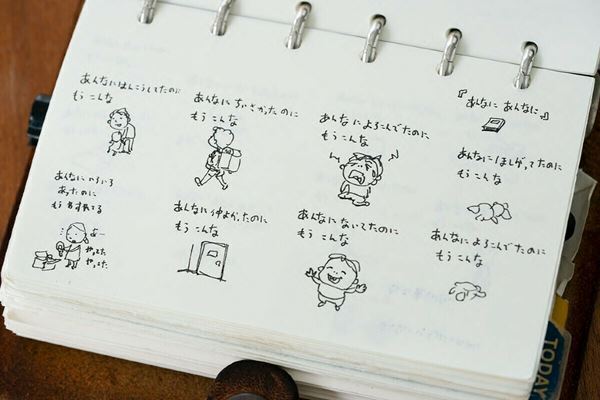 『あんなに あんなに』
あんなに ほしがってたのに
もう こんな
あんなに よろこんでたのに
もう こんな
あんなに よろこんでたのに
もう こんな
あんなに ないてたのに
もう こんな
あんなに ちいさかったのに
もう こんな
あんなに 仲よかったのに
もう こんな
あんなにはんこうしてたのに
もう こんな
あんなに いろいろ
あったのに
もう わすれてる
TODAY